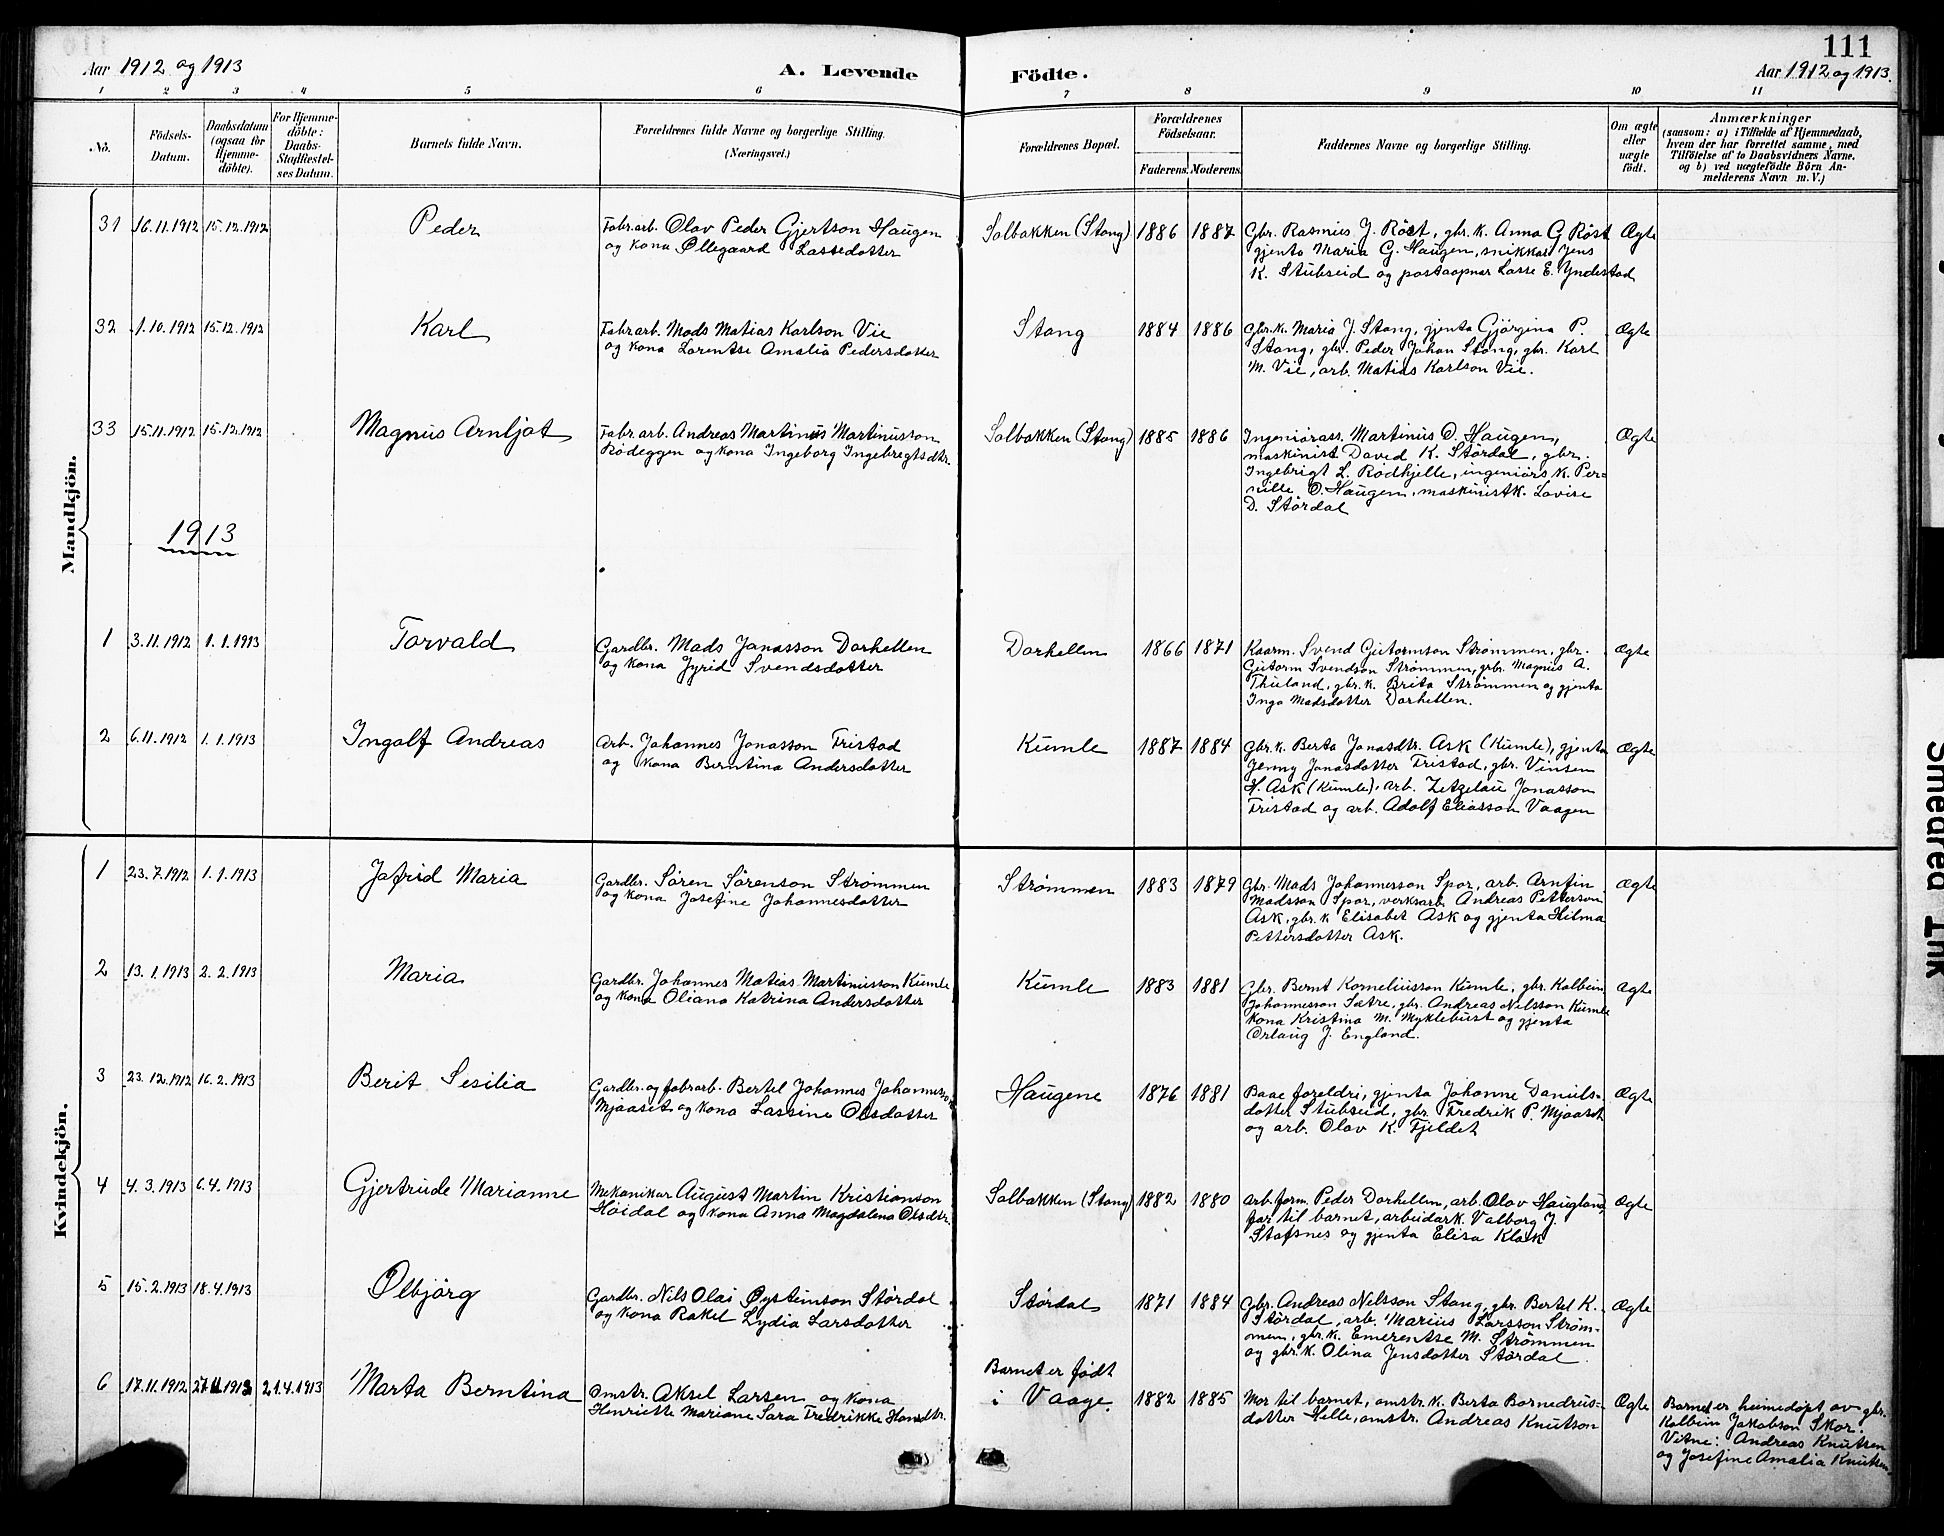 111
Aar 1912 og 1913
A. Levende Födte.
Aar 1912 og 1913.
1 2 3 4 5 6 7 8 9 10 11
No.
Födsels-Datum.
Daabsdatum (ogsaa for Hjemme-döbte).
For Hjemme-döbte: Daabs-Stadfæstel-ses Datum.
Barnets fulde Navn.
Forældrenes fulde Navne og borgerlige Stilling.
(Næringsvei.)
Forældrenes Bopæl.
Forældrenes Födselsaar.
Faderens. Moderens.
Faddernes Navne og borgerlige Stilling.
Om ægte eller uægte födt.
Anmærkninger
(saasom: a) i Tilfælde af Hjemmedaab,
hvem der har forrettet samme, med
Tilföielse af to Daabsvidners Navne.
og b) ved uægtefödte Börn An-
melderens Navn m. V.)
Mandkjön.
31 16.11.1912 15.12.1912 Peder
Fabr.arb. Olav Peder Gjertson Haugen
og kona Øllegaard Lassedotter
Solbakken (Stang) 1886 1887
Gbr. Rasmus J. Røst, gbr. k. Anna G Røst
gjenta Maria G. Haugen, snikkar Jens
K. Stubseid og postaapnar Lasse E. Yndestad
Ægte
32 1.10.1912 15.12.1912 Karl
Fabr.arb. Mads Matias Karlson Vie
og kona Lorentse Amalia Pedersdotter
Stang 1884 1886
Gbr.k. Maria J. Stang, gjenta Gjørgina P.
Stang, gbr. Peder Johan Stang, gbr. Karl
M. Vie, arb. Matias Karlson Vie.
Ægte
33 15.11.1912 15.12.1912 Magnus Arnljot
Fabr.arb. Andreas Martinus Martinusson
Rødeggen og kona Ingeborg Ingebregtsdtr.
Solbakken (Stang) 1885 1886
Ingeniørass. Martinus O. Haugen,
maskinist David K. Størdal, gbr.
Ingebrigt L. Rødhjelle, ingeniørs k. Per-
nille O. Haugen, maskinistk. Lovise
D. Størdal
Ægte
1913
1 3.11.1912 1.1.1913 Torvald
Gardbr. Mads Jonasson Dorhellen
og kona Jyrid Svendsdotter
Dorhellen 1866 1871
Kaarm. Svend Gutormson Strømmen, gbr.
Gutorm Svendson Strømmen, gbr. Magnus A.
Thuland, gbr. k. Brita Strømmen og gjenta
Inga Madsdotter Dorhellen.
Ægte
2 6.11.1912 1.1.1913 Ingolf Andreas
Arb. Johannes Jonasson Fristad
og kona Berntina Andersdotter
Kumle 1887 1884
Gbr.k. Berta Jonasdtr. Ask (Kumle), gjenta
Jenny Jonasdotter Fristad, gbr. Vinsen
H. Ask (Kumle), arb. Zetzelau Jonasson
Fristad og arb. Adolf Eliasson Vaagen
Ægte
Kvindekjön.
1 23.7.1912 1.1.1913 Jafrid Maria
Gardbr. Søren Sørenson Strømmen
og kona Josefine Johannesdotter
Strømmen 1883 1879
Gbr. Mads Johannesson Spor, arb. Arnfin
Madsson Spor, verksarb. Andreas Petterson
Ask, gbr. k Elisabet Ask og gjenta Hilma
Pettersdotter Ask.
Ægte
2 13.1.1913 2.2.1913 Maria
Gardbr. Johannes Matias Martinusson Kumle
og kona Oliana Katrina Andersdotter
Kumle 1883 1881
Gbr. Bernt Korneliusson Kumle, gbr. Kolbein
Johannesson Sætre, gbr. Andreas Nilsson Kumle
kona Kristina M. Myklebust og gjenta
Orlaug J. England.
Ægte
3 23.12.1912 16.2.1913 Berit Sesilia
Gardbr. og fabrarb. Bertel Johannes Johannesson
Mjaaset og kona Lassine Olsdotter
Haugene 1876 1881
Baae foreldri, gjenta Johanne Daniels-
dotter Stubseid, gbr. Fredrik P. Mjaaset
og arb. Olav K. Fjeldet
Ægte
4 4.3.1913 6.4.1913 Gjertrude Marianne
Mekanikar August Martin Kristianson
Høidal og kona Anna Magdalena Olsdtr.
Solbakken (Stang) 1882 1880
Arb.form. Peder Dorhellen, arb. Olav Haugland,
far til barnet, arbeidark. Valborg J.
Stafsnes og gjenta Elisa Klak
Ægte
5 15.2.1913 18.4.1913 Ølbjörg
Gardbr. Nils Olai Øysteinson Størdal
og kona Rakel Lydia Larsdotter
Størdal 1871 1884
Gbr. Andreas Nilsson Stang, gbr. Bertel K.
Størdal, arb. Marius Larsson Strøm-
men, gbr. k. Emerentse M. Strømmen
og gbr. k. Olina Jensdotter Størdal.
Ægte
6 17.11.1912 27.11.1912 21.4.1913 Marta Berntina
Omstr. Aksel Larsen og kona
Henriette Mariane Sara Fredrikke Hansdtr.
Barnet er født
i Vaage. 1882 1885
Mor til barnet, omstr. k. Berta Bornedrus-
dotter Hille, omstr. Andreas Knutson
Ægte
Barnet er heimedøpt av gbr.
Kolbein Jakobson Skor.
Vitne: Andreas Knutsen
og Josefine Amalia Knutsen.
Smeared Ink